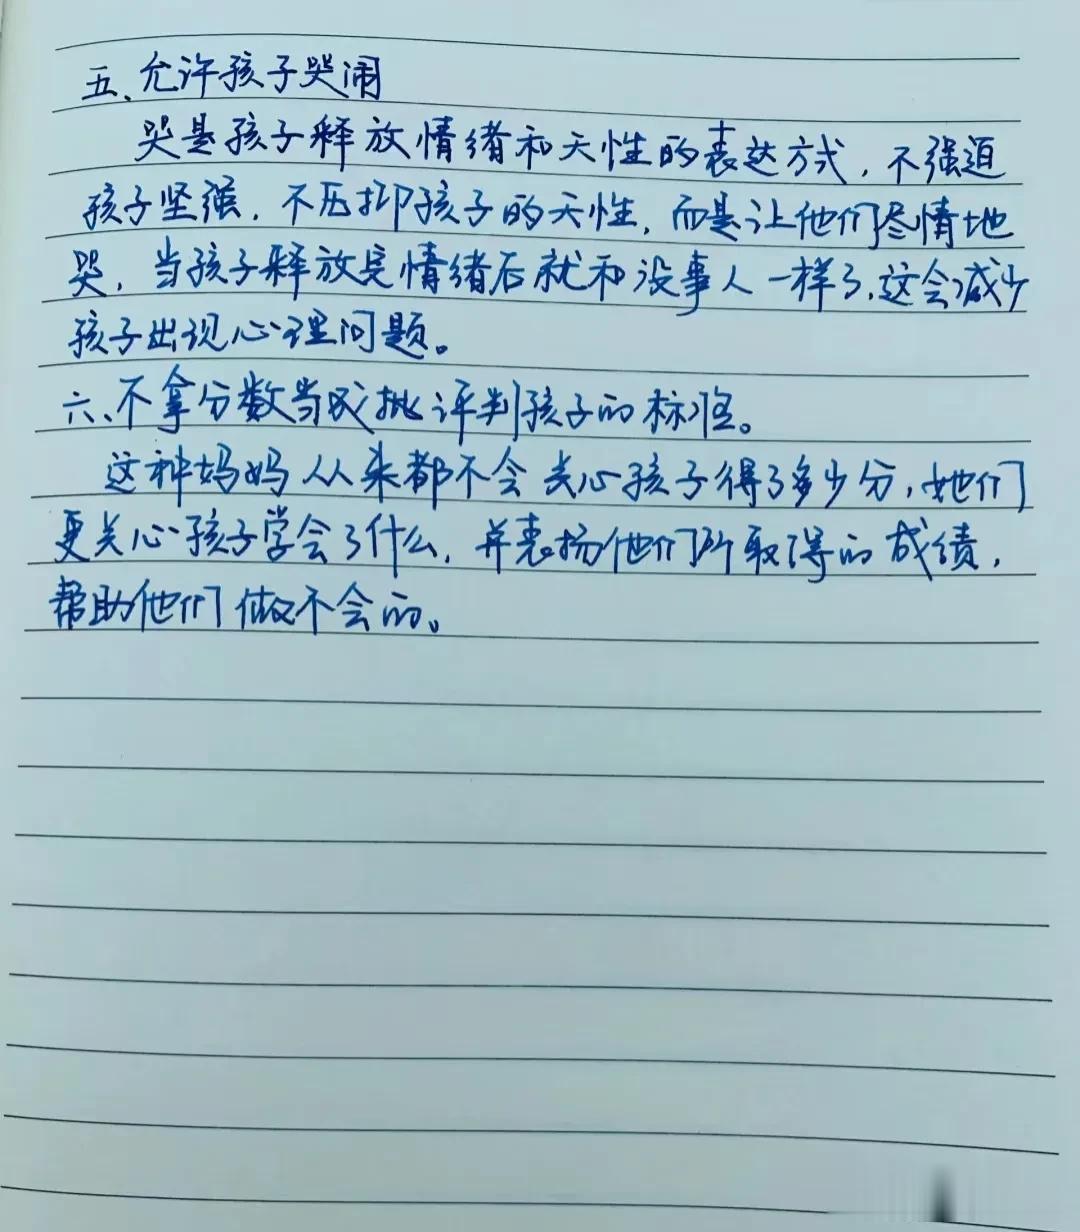 五、允许孩子哭闹
哭是孩子释放情绪和天性的表达方式，不强迫
孩子坚强，不压抑孩子的天性，而是让他们尽情地
哭，当孩子释放完情绪后就和没事人一样了，这会减少
孩子出现心理问题。
六、不拿分数当成批评判孩子的标准。
这种妈妈从来都不会关心孩子得了多少分，她们
更关心孩子学会了什么，并表扬他们所取得的成绩，
帮助他们做不会的。